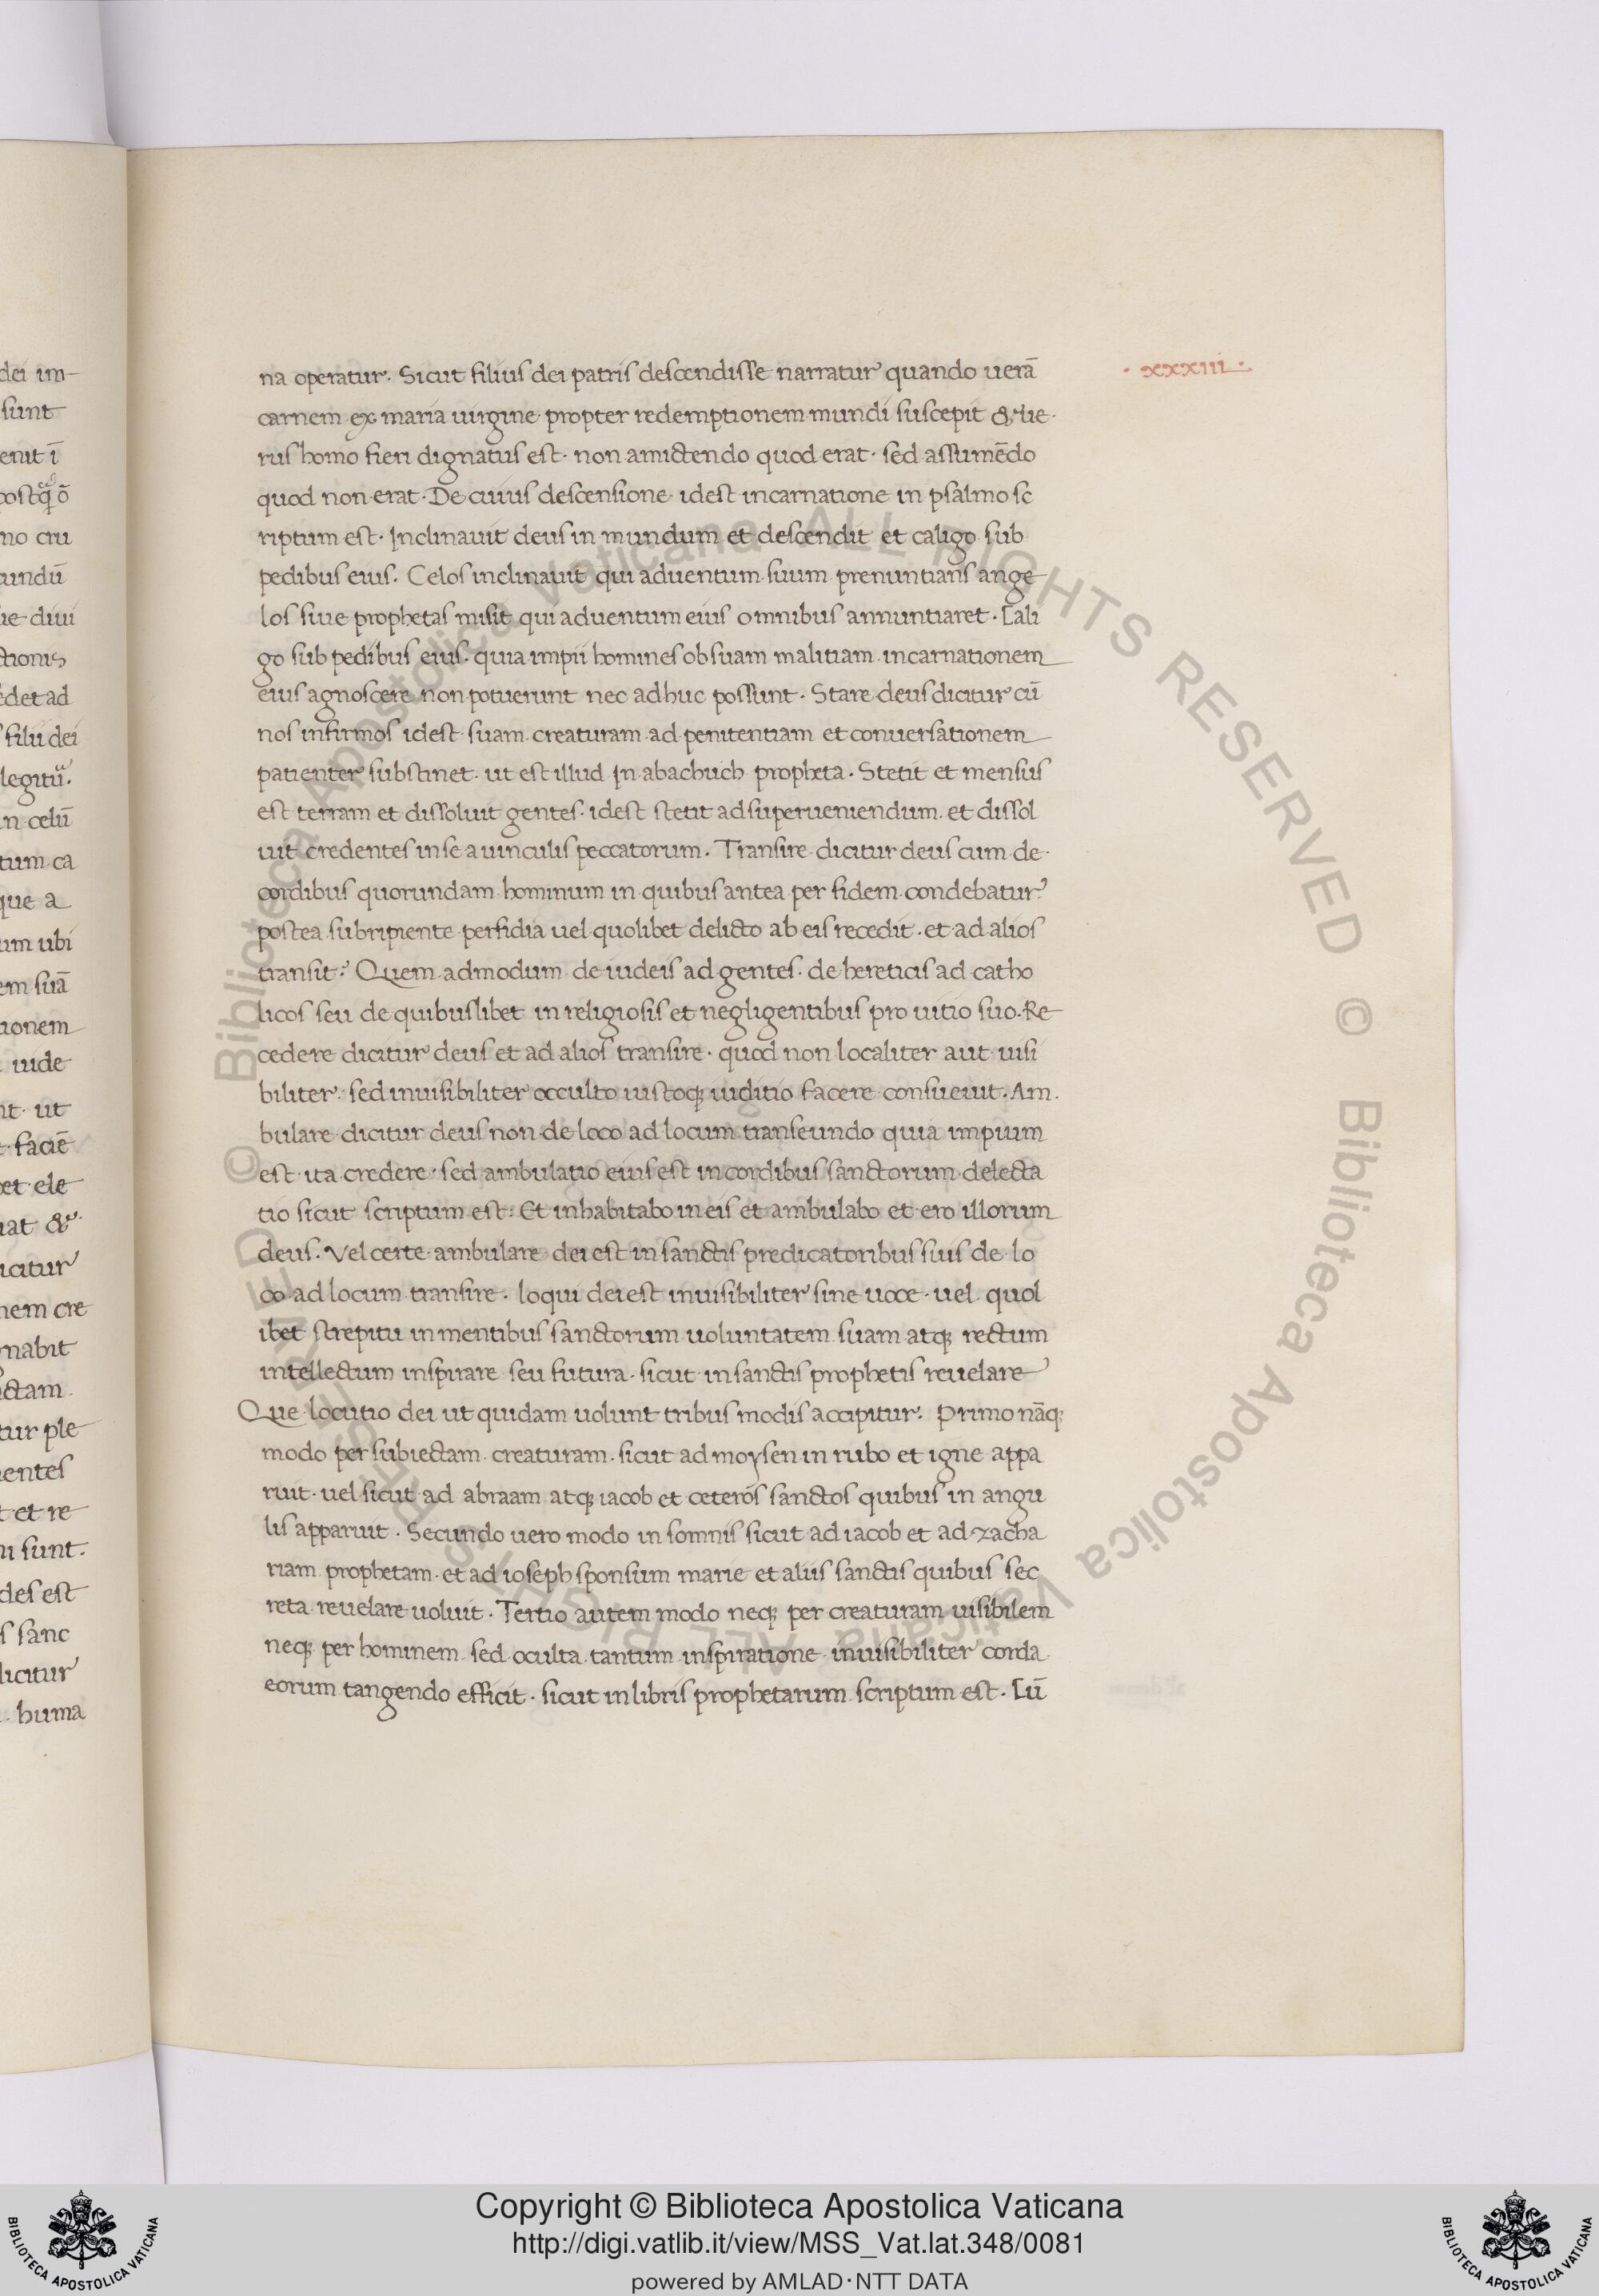 dei im-
sunt
enit ī
postq̄ ō
no cru
cundū
ue diui
ctionis
cedet ad
filii dei
legitu.
in celū
tum ca
que a
um ubi
em suā
tionem
iude
nt ut
faciē
et ele
iat &
icitur
nem cre
nabit
ctam.
tur ple
entes
t et re
ni sunt.
des est
s sanc
licitur
. huma
· xxxiii ·
na operatur. Sicut filius dei patris descendisse narratur quando uerā
carnem ex maria uirgine propter redemptionem mundi suscepit & ue·
rus homo fieri dignatus est· non amictendo quod erat· sed assumēdo
quod non erat· De cuius descensione· idest incarnatione in psalmo sc
riptum est· Inclinauit deus in mundum et descendit et caligo sub
pedibus eius. Celos inclinauit qui aduentum suum prenuntians ange
los siue prophetas misit qui aduentum eius omnibus annuntiaret. Cali
go sub pedibus eius· quia impii homines ob suam malitiam incarnationem
eius agnoscere non potuerunt nec adhuc possunt. Stare deus dicitur cū
nos infirmos idest suam creaturam ad penitentiam et conuersationem
patienter substinet· ut est illud In abachuch propheta. Stetit et mensus
est terram et dissoluit gentes· idest stetit ad superueniendum. et dissol
uit credentes in se a uinculis peccatorum. Transire dicitur deus cum de·
cordibus quorundam hominum in quibus antea per fidem condebatur
postea subripiente perfidia uel quolibet delicto ab eis recedit. et ad alios
transit. Quem admodum de iudeis ad gentes. de hereticis ad catho
licos seu de quibuslibet in religiosis et negligentibus pro uitio suo. Re
cedere dicitur deus et ad alios transire. quod non localiter aut uisi
biliter. sed inuisibiliter occulto iustoq; iuditio facere consueuit. Am.
bulare dicitur deus non de loco ad locum transeundo quia impium
est ita credere· sed ambulatio eius est in cordibus sanctorum delecta
tio sicut scriptum est: Et inhabitabo in eis et ambulabo et ero illorum
deus. Vel certe ambulare dei est in sanctis predicatoribus suis de lo
co ad locum transire. loqui dei est inuisibiliter sine uoce· uel quol
ibet strepitu in mentibus sanctorum uoluntatem suam atq; rectum
intellectum inspirare seu futura. sicut in sanctis prophetis reuelare
Que locutio dei ut quidam uolunt tribus modis accipitur. Primo nāq;
modo per subiectam creaturam. sicut ad moysen in rubo et igne appa
ruit· uel sicut ad abraam atq; iacob et ceteros sanctos quibus in angu
lis apparuit. Secundo uero modo in somnis sicut ad iacob et ad zacha
riam prophetam. et ad ioseph sponsum marie et aliis sanctis quibus sec
reta reuelare uoluit. Tertio autem modo neq; per creaturam uisibilem
neq; per hominem sed oculta tantum inspiratione inuisibiliter corda
eorum tangendo efficit. sicut in libris prophetarum scriptum est. Cū
© Biblioteca Apostolica Vaticana ALL RIGHTS RESERVED © Biblioteca Apostolica Vaticana ALL RIGHTS RESERVED
Copyright © Biblioteca Apostolica Vaticana
http://digi.vatlib.it/view/MSS_Vat.lat.348/0081
powered by AMLAD·NTT DATA
BIBLIOTECA APOSTOLICA VATICANA
BIBLIOTECA APOSTOLICA VATICANA